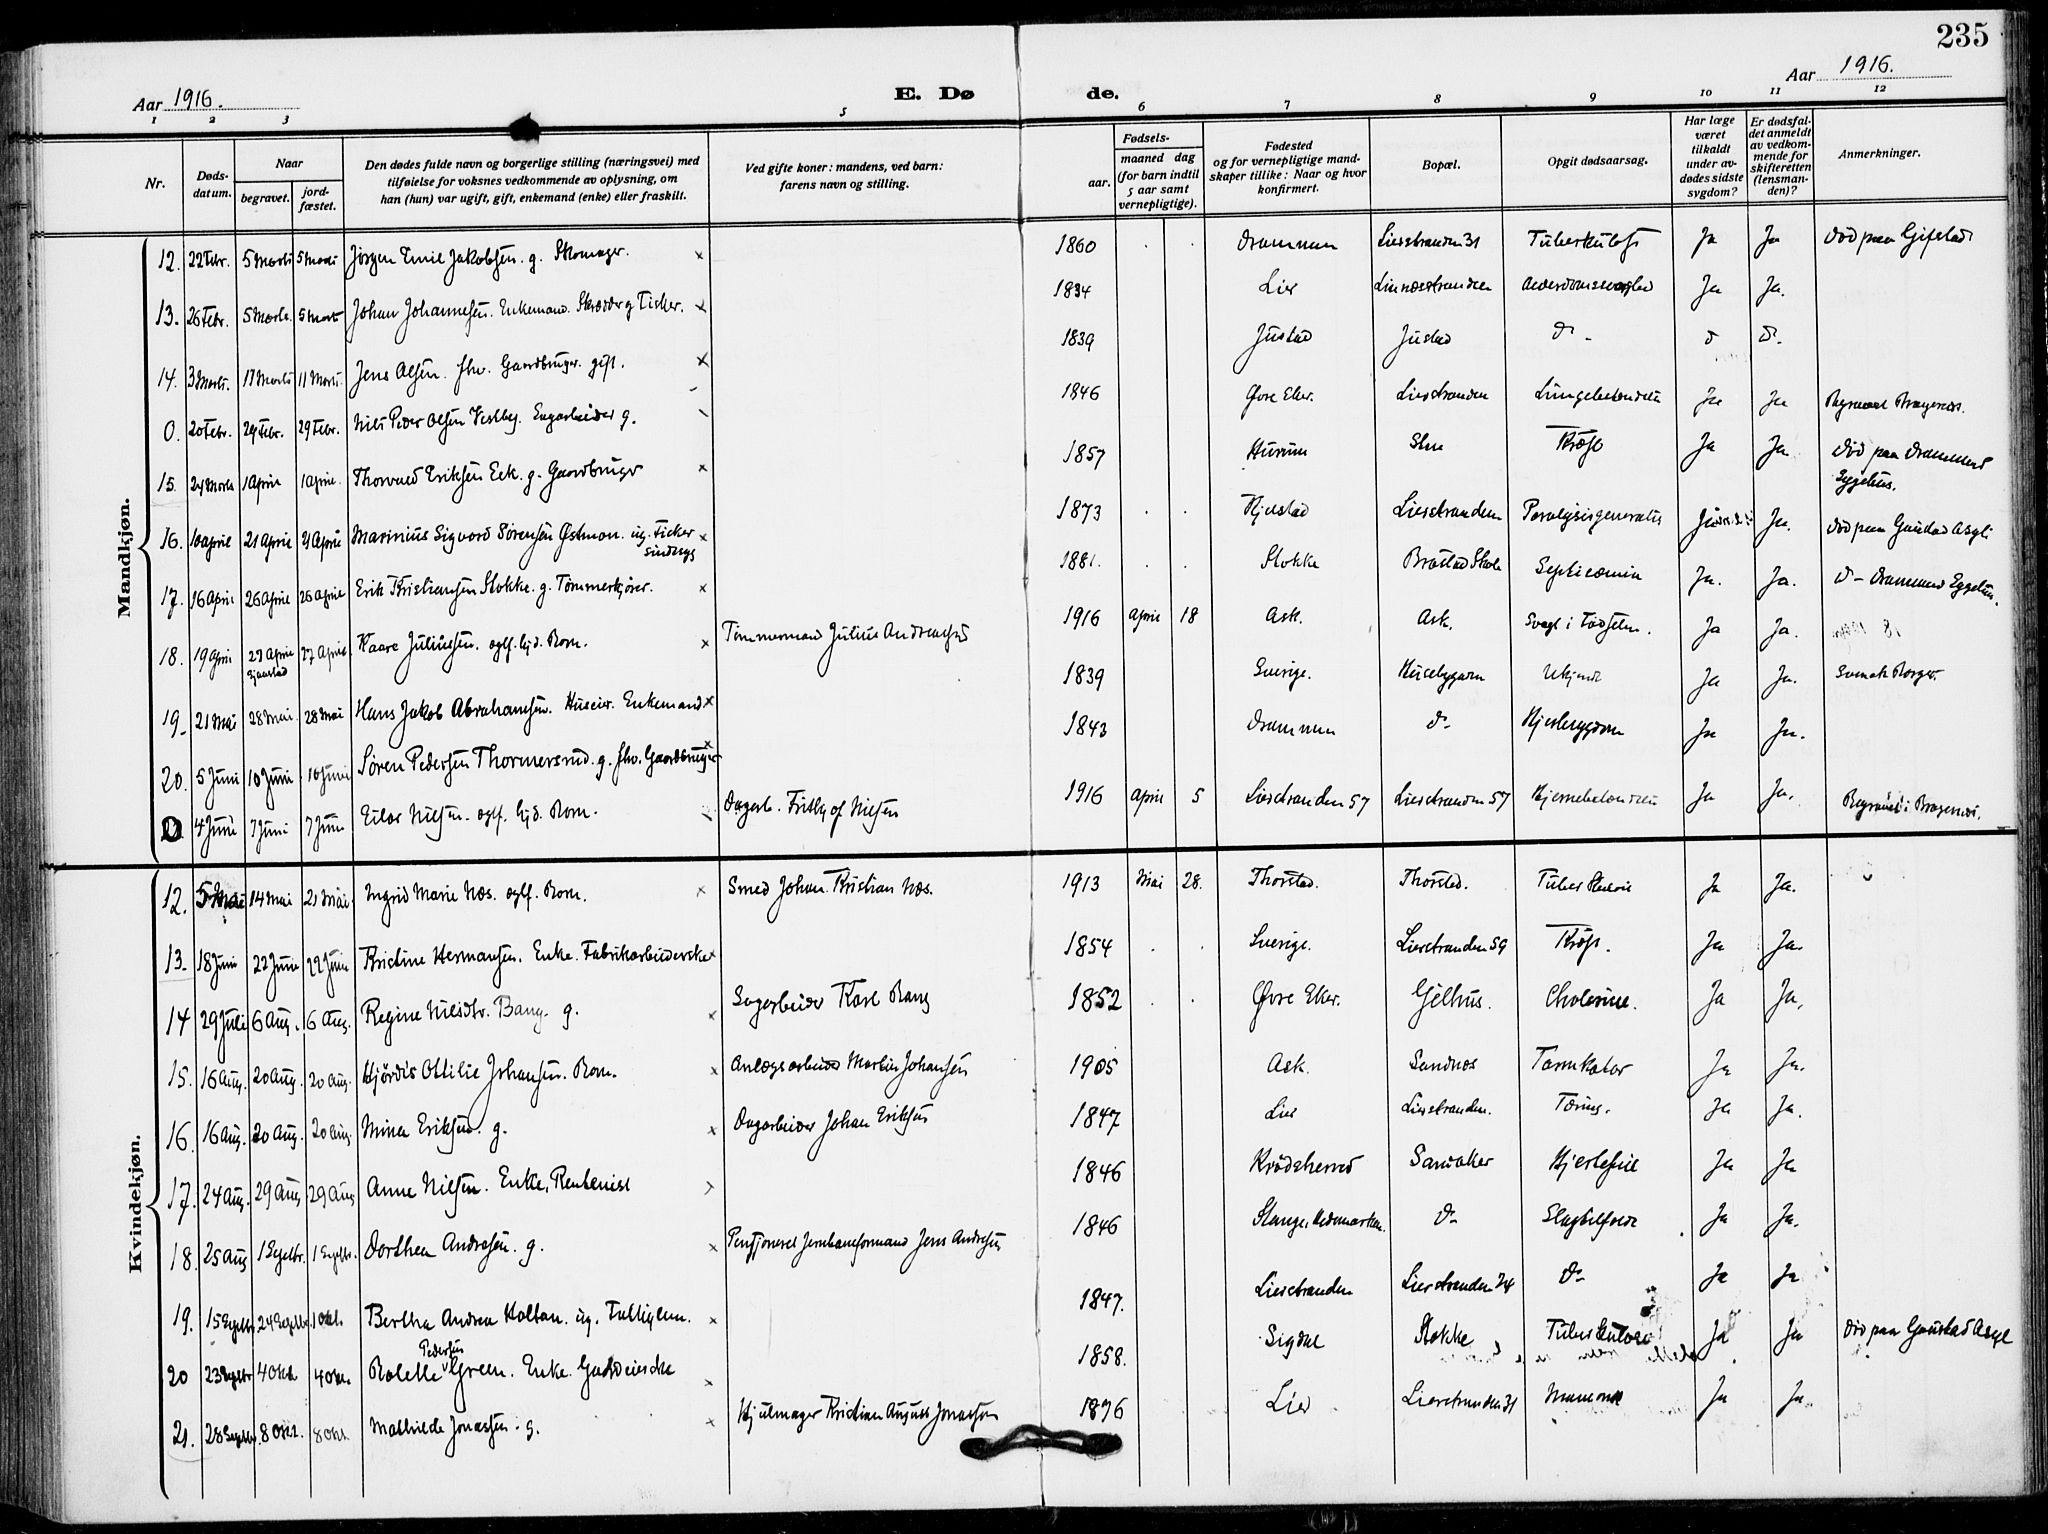 235
Aar 1916.
E. Dø de.
Aar 1916.
1 2 3 5 6 7 8 9 10 11 12
Nr.
Døds-
datum.
Naar
begravet.
jord-
fæstet.
Den dødes fulde navn og borgerlige stilling (næringsvei) med
tilføielse for voksnes vedkommende av oplysning, om
han (hun) var ugift, gift, enkemand (enke) eller fraskilt.
Ved gifte koner: mandens, ved barn:
farens navn og stilling.
Fødsels-
aar.
maaned dag
(for barn indtil
5 aar samt
vernepligtige).
Fødested
og for vernepligtige mand-
skaper tillike: Naar og hvor
konfirmert.
Bopæl.
Opgit dødsaarsag.
Har læge
været
tilkaldt
under av-
dødes sidste
sygdom?
Er dødsfal-
det anmeldt
av vedkom-
mende for
skifteretten
(lensman-
den)?
Anmerkninger.
Mandkjøn.
12. 22 Febr. 5 Marts 5 Marts Jørgen Emil Jakobsen. g. Skomager. x 1860 . . Drammen Lierstranden 31 Ja Ja Død paa Gjestad
13. 26 Febr. 5 Marts 5 Marts Johan Johannesen. Enkemand. Skrædder g Fisker. x 1834 Lier Ja Ja.
14. 3 Marts. 11 Marts 11 Marts. Jens Olsen. fhv. Gaardbruger. gift. x 1839 Justad Justad do -
0. 20 Febr. 29 Febr. 29 Febr. Nils Peder Olsen Vestby. g. 1846 Øvre Eker. Lierstranden Lungebetændelse Ja Ja Begravet Bragernes.
15. 24 Marts 1 April 1 April. Thorvald Eriksen Eek. g. Gaardbruger x 1857 Hurum Kræft Ja Ja Død paa Drammens
Sygehus.
16. 10 April 21 April 21 April Marinius Sigvard Sørensen Østman. ug. Fisker x
sindssyg 1873 . . Lierstranden Ja. Død paa Gaustad Asyl
17. 16 April 26 April 26 April Erik Kristiansen Stokke. g. Tømmerkjører. x 1881. . . Stokke Septicæmia Ja. Ja. do - Drammens Sygehus.
18. 19 April 27 April 27 April Kaare Juliussen. Barn. x Tømmermand Julius Andreassen 1916 April 18 Ask. Ask. Svagt i Fødselen. Ja Ja.
19. 21 Mai 28 Mai 28 Mai Hans Jakob Abrahamsen. Huseier. Enkemand x 1839 Sverige. Husebygaen Ukjendt Ja Ja. Svensk Borger.
20. 5 Juni 10 Juni 10 Juni Søren Pedersen Thormersrud. g. fhv. Gaardbruger x 1843 Drammen do Ja Ja.
0 4 Juni 7 Juni 7 Juni Eilar Nilsen. Barn. Dagarb. Frithjof Nilsen 1916 April 5 Lierstranden 57 Lierstranden 57 Hjernebetændelse Ja Ja. Begravet i Bragernes.
Kvindekjøn.
12. 5 Mai 14 Mai 21 Mai. Ingrid Marie Næs. Barn. x Smed Johan Kristian Næs. 1913 Mai 28. Thorstad. Thorstad. Ja Ja.
13. 18 Juni 22 Juni 22 Juni Kristine Hermansen. Enke. Fabrikarbeiderske x 1854 . . Sverige. Lierstranden 59 Kræft. Ja Ja.
14 29 Juli 6 Aug. 6 Aug. Regine Nilsdtr. Bang. g. x Sagarbeider Karl Bang 1852 . . Øvre Eker. Gilhus. Cholerine. Ja Ja.
15. 16 Aug. 20 Aug. 20 Aug. Hjørdis Ottilie Johansen. Barn. x Anlægsarbeider Martin Johansen 1905 Ask. Sandnes Tarmkatar Ja Ja.
16. 16 Aug. 20 Aug. 20 Aug. Mina Eriksen. g. x Dagarbeider Johan Eriksen 1847 Lier Lierstranden. Tæring. Ja Ja.
17. 24 Aug. 29 Aug 29 Aug Anne Nilsen. Enke, Rentenist 1846 Krødsherred Hjertefeil Ja Ja
18. 25 Aug 1 Septbr. 1 Septbr. Dorthea Andresen. g. x Pensjoneret Jernbaneformand Jens Andresen 1846 Stange, Hedemarken. do Slagtilfælde Ja Ja.
19. 15 Septbr. 24 Septbr. 1 Okt. Bertha Andrea Holtan. ug. Fattiglem. x 1847. Lierstranden Lierstranden 34 do Ja Ja
20 23 Septbr 4 Okt. 4 Okt. Rolette Pedersen Green. Enke. Gaardeierske x 1858. Sigdal Stokke Tuberkulose Ja Ja Død paa Gaustad Asyl
21. 28 Septbr. 8 Okt. 8 Okt. Mathilde Jonassen. g. x Hjulmager Kristian August Jonassen 1896 Lier Lierstranden 31 Ja Ja